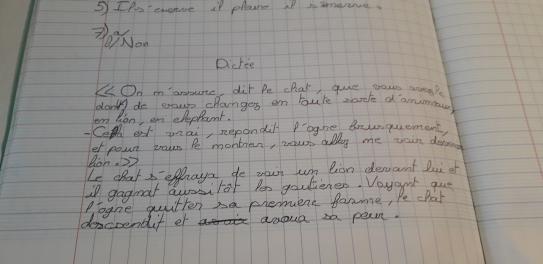 5) Ils
il pleure il s'énerve.
7) a/Non
Dictée
<< On m'assure, dit le chat, que vous avez le
don de vous changez en toute sorte d'animaux,
en lion, en elephant.
- Cela est vrai, répondit l'ogre brusquement,
et pour vous le montrer, vous allez me voir devenir
lion. >>
Le chat s'effraya de voir un lion devant lui et
il gagnat aussitôt les goutieres. Voyant que
l'ogre quitter sa premiere forme, le chat
descendit et avoua sa peur.